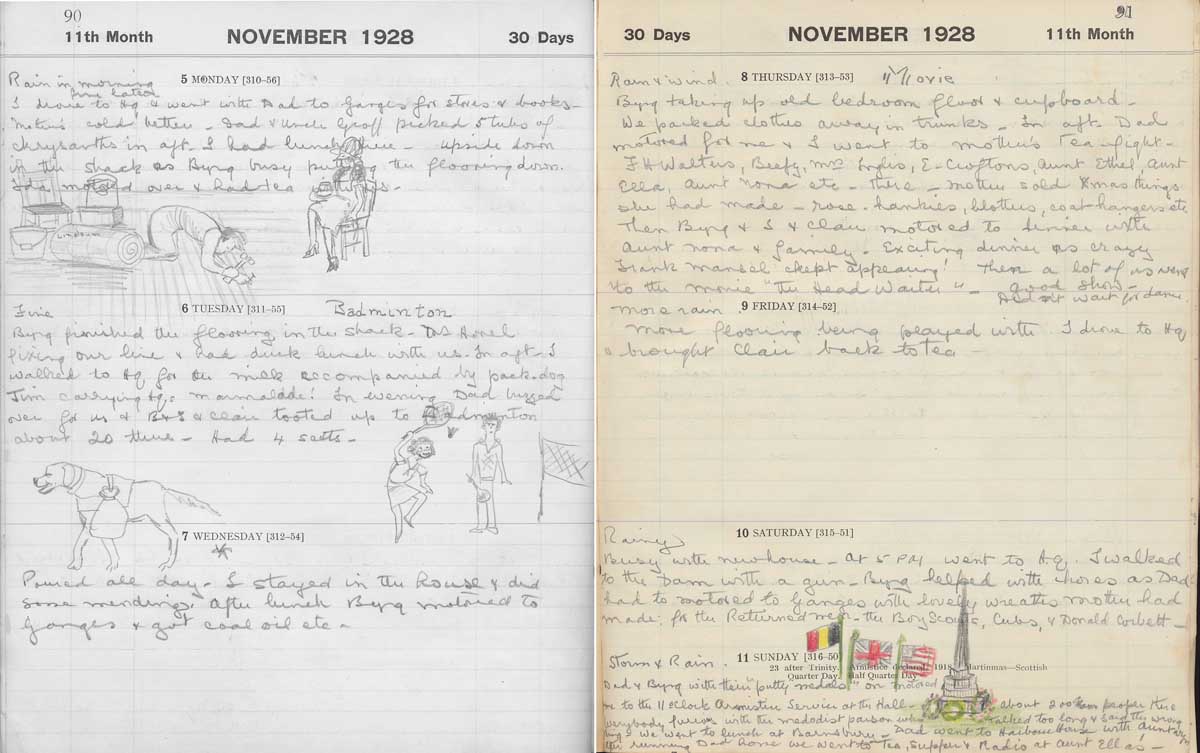 90
11th Month NOVEMBER 1928 30 Days
5 MONDAY [310-56]
Rain in morning
fine later
I drove to Hq & went with Dad to Ganges for stores & books-
Mother's cold better - Dad & Uncle Geoff picked 5 tubs of
chrysanths in aft. I had lunch there - upside down
in the shack as Byrq busy putting the flooring down.
motored over & had tea with us-
linoleum
6 TUESDAY [311-55] Badminton
Fine
Byrq finished the flooring in the shack-
fixing our line & had duck lunch with us. In aft. I
walked to Hq for our milk accompanied by pack-dog
Jim carrying Hq's marmalade! In evening Dad buzzed
over for us & B & I & Clair tooted up to Badminton
about 20 there - Had 4 setts-
7 WEDNESDAY [312-54]
Poured all day- I stayed in the house & did
some mendings. After lunch Byrq motored to
Ganges & got coal oil etc-
91
30 Days NOVEMBER 1928 11th Month
8 THURSDAY [313-53] "Movie
Rain & wind.
Byrq taking up old bedroom floor & cupboard-
We packed clothes away in trunks- In aft. Dad
motored for me & I went to mother's Tea-fight-
F. H. Walters, Beefy, Mrs Inglis, E. Croftons, Aunt Ethel, Aunt
Ella, Aunt Nona etc- there- Mother sold Xmas things
she had made- rose hankies, blotters, coat-hangers etc
Then Byrq & I & Clair motored to dinner with
Aunt Nona & family- Exciting dinner as crazy
Frank Mansel kept appearing! Then a lot of us went
to the movie "The Head Waiter"- good show-
Did not wait for dance
9 FRIDAY [314-52]
more rain
More flooring being played with. I drove to Hq
& brought Clair back to Tea-
10 SATURDAY [315-51]
Rainey
Busy with new house- At 5 PM went to Hq. I walked
to the Dam with a gun- Byrq helped with chores as Dad
had to motored to Ganges with lovely wreaths mother had
made, for the Returned men- the Boy Scouts, Cubs, & Donald Corbett-
11 SUNDAY [316-50]
23 after Trinity. Armistice declared, 1918. Martinmas—Scottish
Quarter Day. Half Quarter Day
Storm & Rain.
Dad & Byrq with their "putty medals" on motored
me to the 11 o'clock Armistice Service at the Hall- about 200 people there
everybody furious with the medodist parson who talked too long & said the wrong
thing! We went to lunch at Barnsbury- Dad went to Harbour House with
the running Dad home we went to Tea, Supper & Radio at Aunt Ella's!